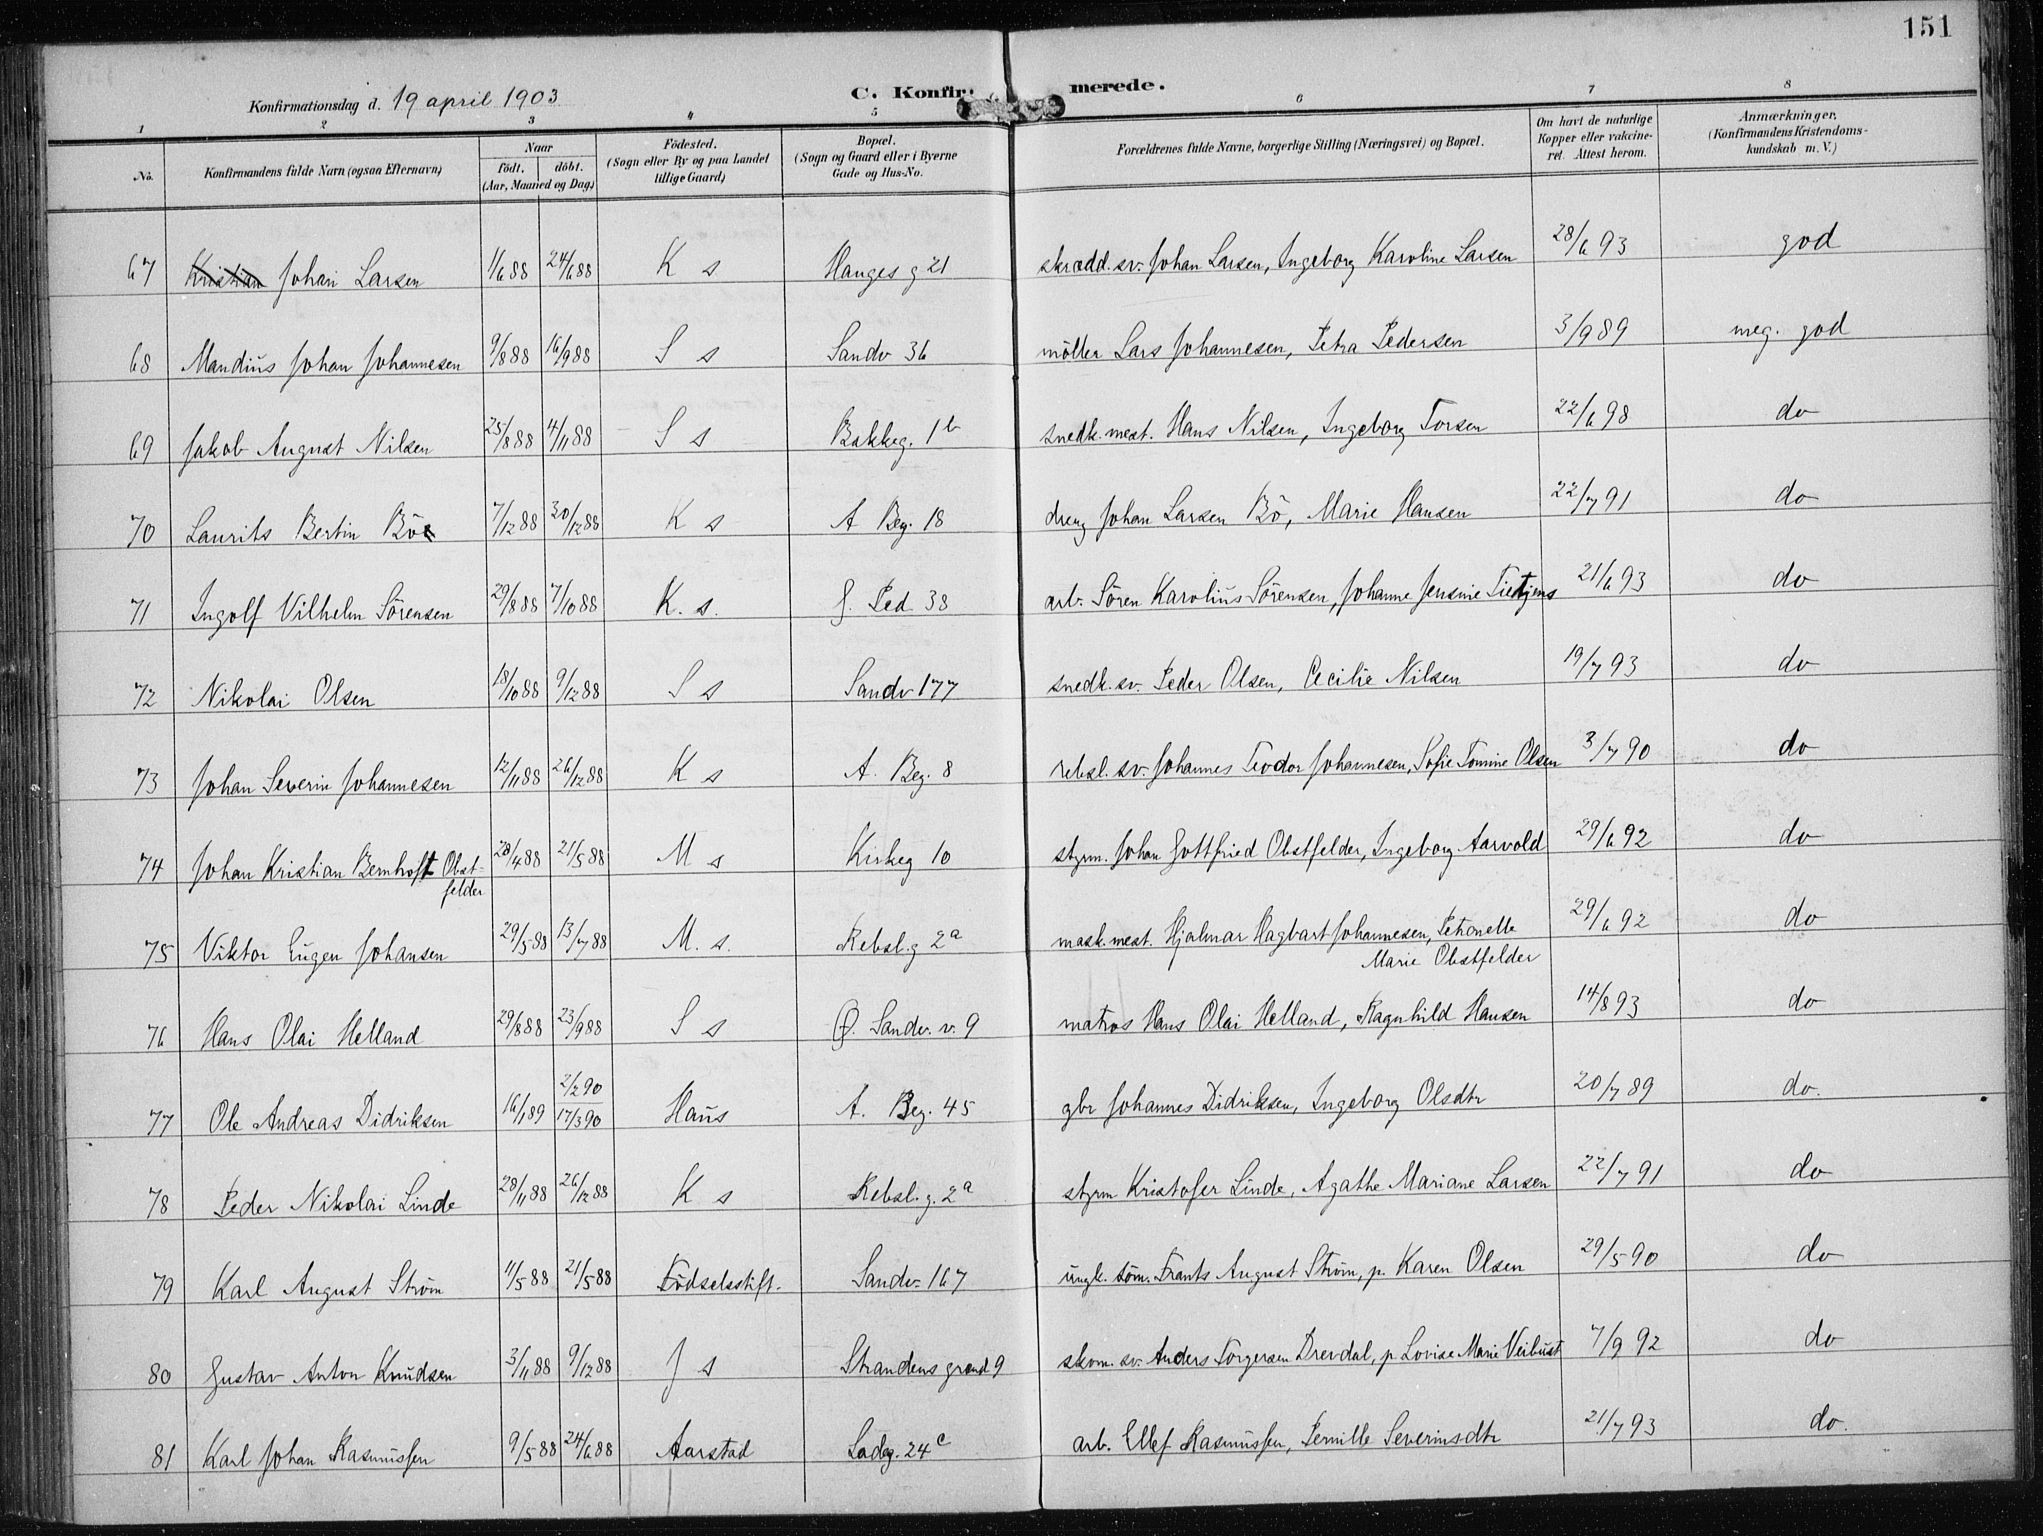 151
Konfirmationsdag d. 19 april 1903
C. Konfir- merede.
1 2 3 4 5 6 7 8
No. Konfirmandens fulde Navn (ogsaa Efternavn) Naar født. døbt. (Aar, Maaned og Dag) Fødested. (Sogn eller By og paa Landet tillige Gaard) Bopæl. (Sogn og Gaard eller i Byerne Gade og Hus-No. Forældrenes fulde Navne, borgerlige Stilling (Næringsvei) og Bopæl. Om havt de naturlige Kopper eller vakcine- ret. Attest herom. Anmærkninger. (Konfirmandens Kristendoms- kundskab m. V.)
67 Kristian Johan Larsen 1/6 88 24/6 88 K s Hauges g 21 skrædd. sv. Johan Larsen, Ingeborg Karoline Larsen 28/6 93 god
68 Mandius Johan Johannesen 9/8 88 16/9 88 S s Sandv 36 møller Lars Johannesen, Petra Pedersen 3/9 89 meg. god
69 Jakob August Nilsen 25/8 88 4/11 88 S s Bakkeg. 1b snedk. mest. Hans Nilsen, Ingeborg Torsen 22/6 98 do
70 Laurits Bertin Bö 7/12 88 30/12 88 K s A Beg. 18 dreng Johan Larsen Bö, Marie Hansen 22/7 91 do
71 Ingolf Vilhelm Sörensen 29/8 88 7/10 88 K. s. J. Ped 38 arb. Sören Karolius Sörensen, Johanne Jensine Tietjens 21/6 93 do
72 Nikolai Olsen 18/10 88 9/12 88 S s Sandv 177 snedk. sv. Peder Olsen, Cecilie Nilsen 19/7 93 do
73 Johan Severin Johannesen 12/11 88 26/12 88 K s A. Beg. 8 rebsl. sv. Johannes Teodor Johannesen, Sofie Tomine Olsen 3/7 90 do
74 Johan Kristian Bernhoft Obst- felder 28/4 88 21/5 88 M s Kirkeg 10 styrm. Johan Gottfried Obstfelder, Ingeborg Aarvold 29/6 92 do
75 Viktor Eugen Johansen 29/5 88 13/7 88 M. s. Rebsl.g 2a mask. mest. Hjalmar Hagbart Johannesen, Petronelle Marie Obstfelder 29/6 92 do
76 Hans Olai Helland 29/8 88 23/9 88 S s Ø. Sandv. v. 9 matros Hans Olai Helland, Ragnhild Hansen 14/8 93 do
77 Ole Andreas Didriksen 16/1 89 2/2 90 17/3 90 Haus A. Beg. 45 gbr Johannes Didriksen, Ingeborg Olsdtr 20/7 89 do.
78 Peder Nikolai Linde 28/11 88 26/12 88 K s Rebsl.g. 2a styrm Kristofer Linde, Agathe Mariane Larsen 22/7 91 do
79 Karl August Ström 11/5 88 21/5 88 Födselsstift. Sandv. 167 ungk. töm. Frants August Ström, p. Karen Olsen 29/5 90 do
80 Gustav Anton Knudsen 3/11 88 9/12 88 J s Strandens grend 9 skom. sv. Anders Torgersen Drevdal, p. Lovise Marie Veibust 7/9 92 do
81 Karl Johan Rasmussen 9/5 88 24/6 88 Aarstad Ladeg. 24c arb. Ellef Rasmussen, Pernille Severinsdtr 21/7 93 do.